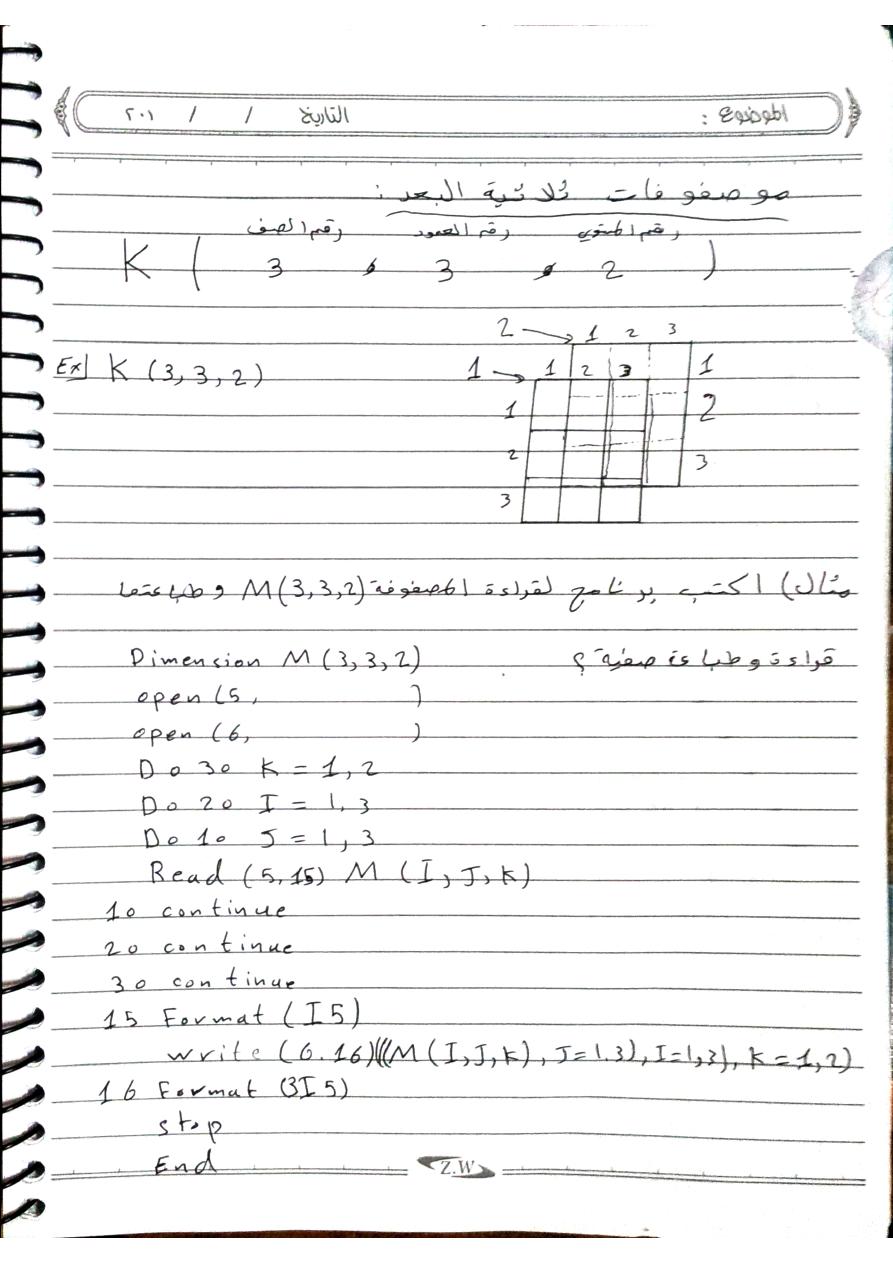 الموضوع : التاريخ / / ٢٠١
موصفوفات ثلاثية البعد :
رقم المستوى رقم العمود رقم الصف
K ( 3 , 3 , 2 )
2 → 1 2 3
Ex] K (3, 3, 2) 1 → 1 2 3 1
1 2
2 3
3
مثال) اكتب برنامج لقراءة المصفوفة M(3,3,2) وطباعتها
قراءة وطباعة صفية ؟
Dimension M (3, 3, 2)
open (5, )
open (6, )
Do 30 K = 1, 2
Do 20 I = 1, 3
Do 10 J = 1, 3
Read (5, 15) M (I, J, K)
10 continue
20 continue
30 continue
15 Format (I5)
write (6.16)(((M (I, J, K), J=1.3), I=1,3), K=1,2)
16 Format (3I5)
stop
End
Z.W